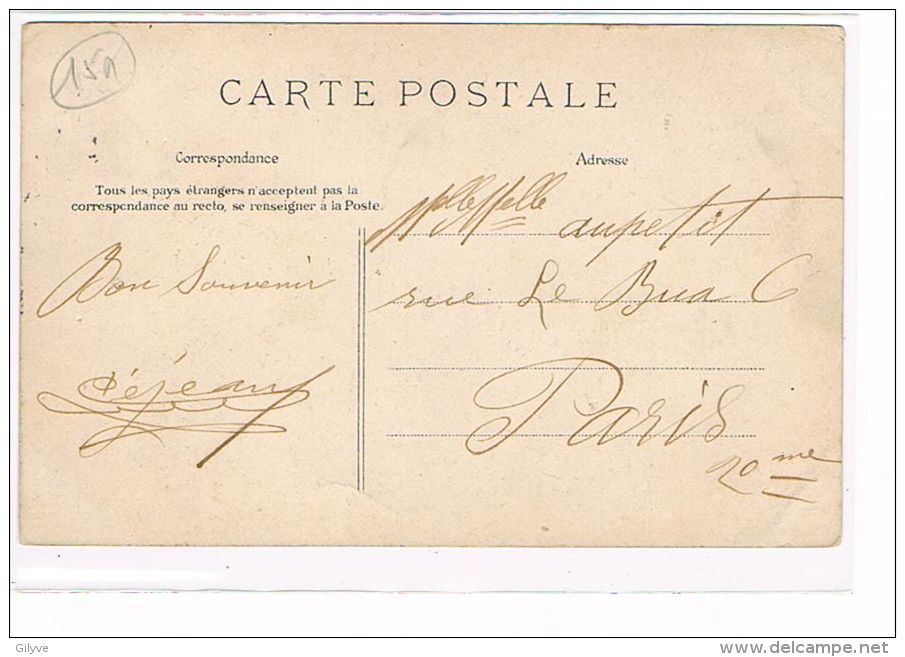 159
CARTE POSTALE
Correspondance
Tous les pays étrangers n'acceptent pas la
correspondance au recto, se renseigner à la Poste.
Bon Souvenir
Déjean
Adresse
aupetit
rue Le Bua 6
Paris
20 me
Gilyve
delcampe.net